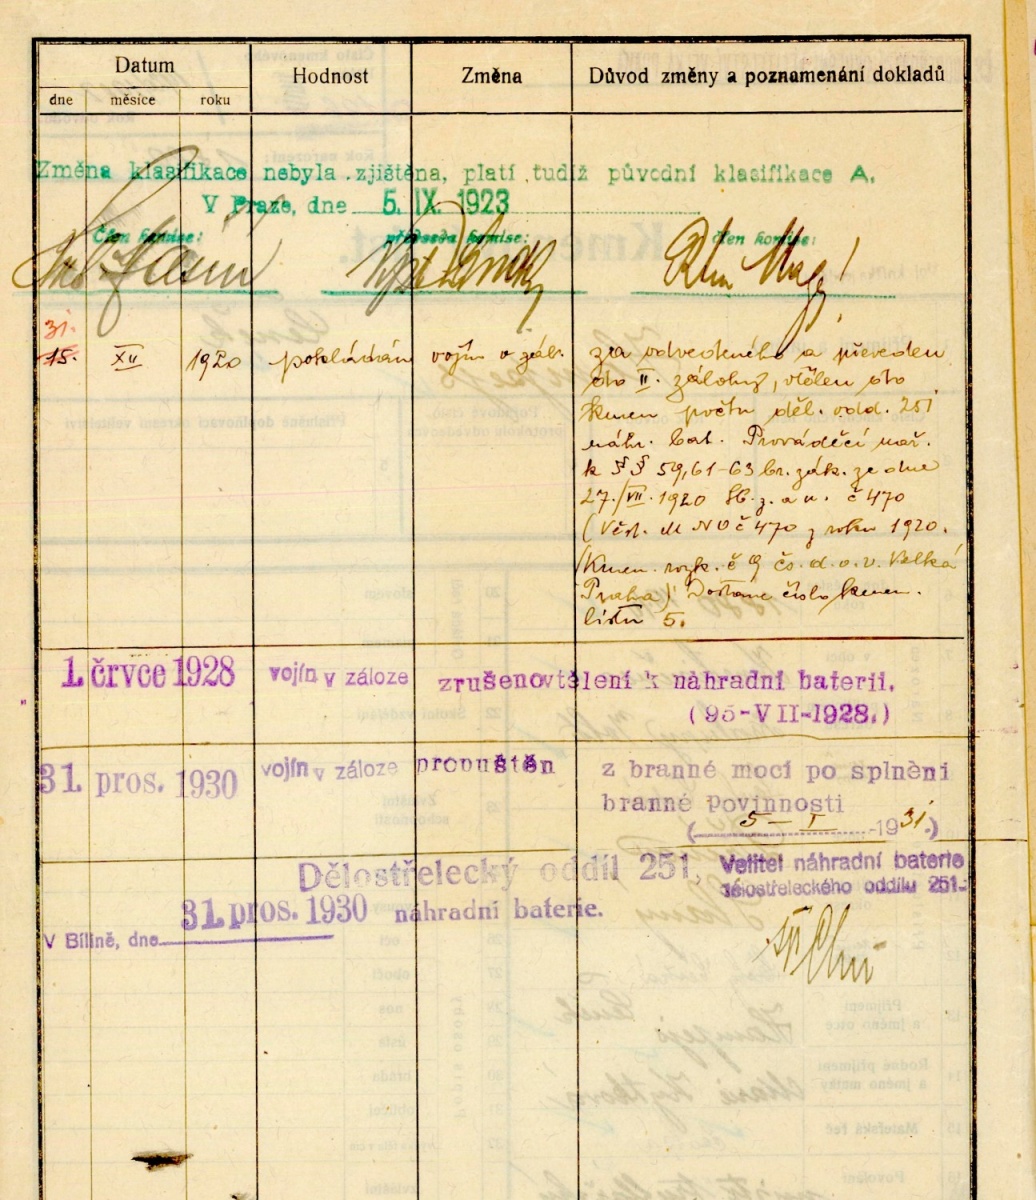 Datum Hodnost Změna Důvod změny a poznamenání dokladů
dne měsíce roku
Změna klasifikace nebyla zjištěna, platí tudíž původní klasifikace A.
V Praze, dne 5. IX. 1923
Člen komise: předseda komise: člen komise:
31.
15. XII 1920 pokládán vojín v zál. za odvedeného a převeden
do II. zálohy, vtělen do
kmen. počtu děl. odd. 251
náhr. bat. Prováděcí nař.
k §§ 59, 61-63 br. zák. ze dne
27./VII. 1920 Sb. z. a n. č 470
(Věst. M N O č 470 z roku 1920.
(Kmen. rozk. č 9 čs. d. o. v. Velká
Praha) Dostane číslo kmen.
listu 5.
1. črvce 1928 vojín v záloze zrušeno vtělení k náhradní baterii.
(95-VII-1928.)
31. pros. 1930 vojín v záloze propuštěn z branné moci po splnění
branné povinnosti
(5-I-1931.)
Dělostřelecký oddíl 251, Velitel náhradní baterie
dělostřeleckého oddílu 251.:
31. pros. 1930 náhradní baterie.
V Bílině, dne